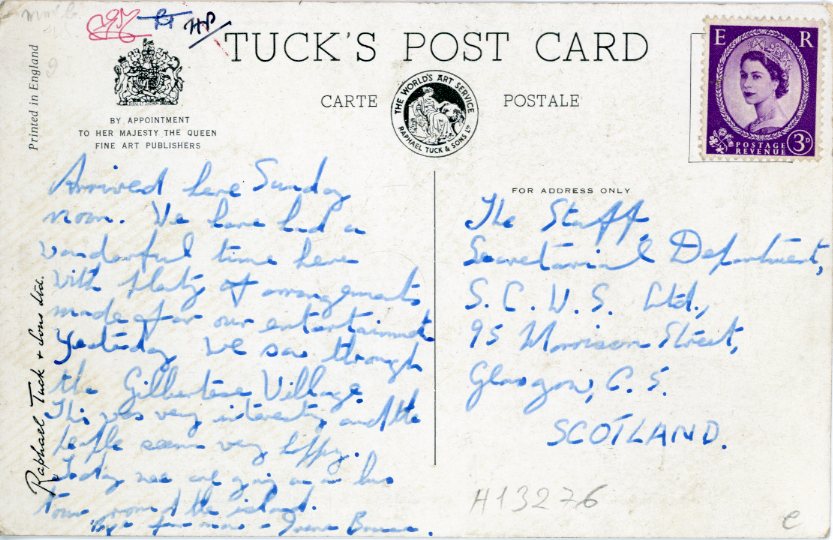 TUCK'S POST CARD
CARTE POSTALE
Printed in England
BY APPOINTMENT
TO HER MAJESTY THE QUEEN
FINE ART PUBLISHERS
THE WORLD'S ART SERVICE
RAPHAEL TUCK & SONS LTD
E R
POSTAGE
REVENUE
3D
Raphael Tuck & Sons Ltd.
Arrived here Sunday
morn. We have had a
wonderful time here
with plenty of arrangements
made for our entertainment
Yesterday we saw through
the Gilbertese Village.
This was very interesting and the
people seem very happy.
Today we are going on a bus
tour round the island.
Bye for now - Irene
FOR ADDRESS ONLY
The Staff,
Secretarial Department,
S.C.W.S. Ltd.,
95 Morrison Street,
Glasgow, C.5.
SCOTLAND.
H13276
e